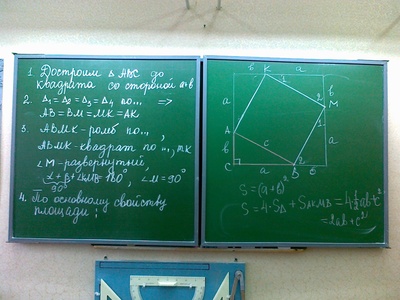 1. Достроим △ABC до
квадрата со стороной a+b
2. Δ₁ = Δ₂ = Δ₃ = Δ₄ по... ⇒
AB = BM = MK = AK
3. ABMK - ромб по...,
ABMK - квадрат по ...,
∠M - развернутый,
∠M = 90°
90°
4. По основному свойству
площади:
б K a
a
A
b
C a B б
c
1
2
b
M
1
a
2
S = (a+b)²
S = 4·S△ + SAKMB = 4·½ab + c²
= 2ab + c²